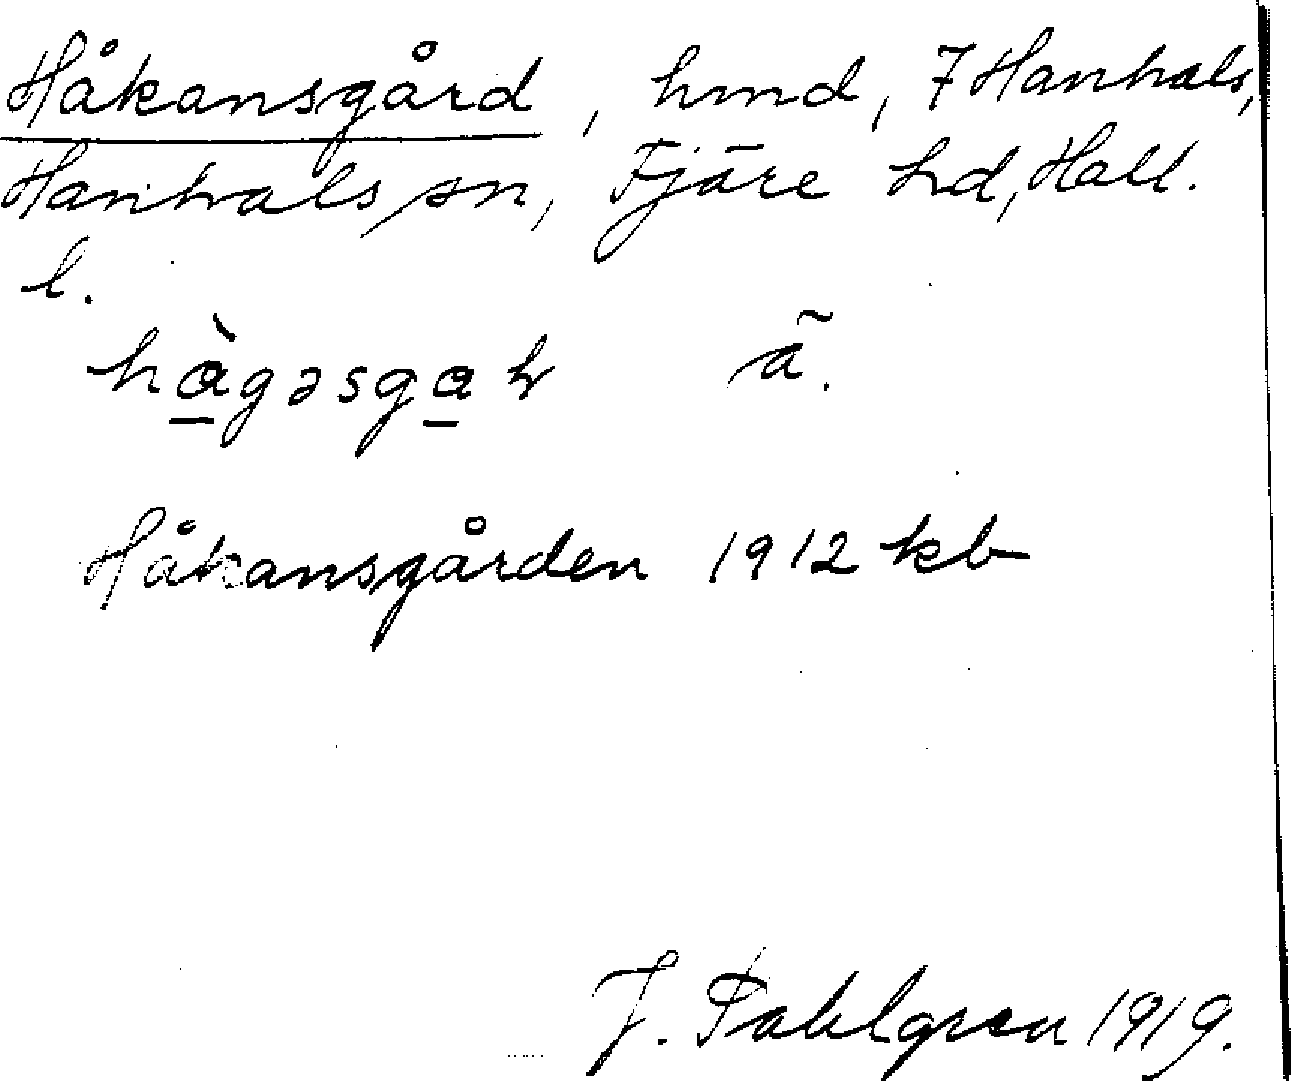 Håkansgård, hmd, 7 Hanhals,
Hanhals sn, Fjäre hd, Hall.
l.
hàgəsgaʀ ã.
Håkansgården 1912 kb
J. Sahlgren 1919.